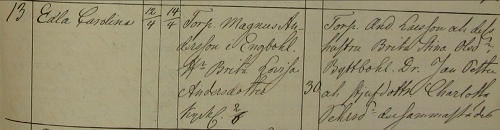 13 Edla Carolina 12/4 14/4
Torp. Magnus An-
dersson i Engbohl.
Hu Brita Lovisa
Andersdotter
30
Torp. And. Larsson ol. dess
hustru Brita Stina Olsdr.
Byttbohl. Dr. Jan Petter
ol. Styfdottr. Charlotta
Jehrsdr. dersammastädes